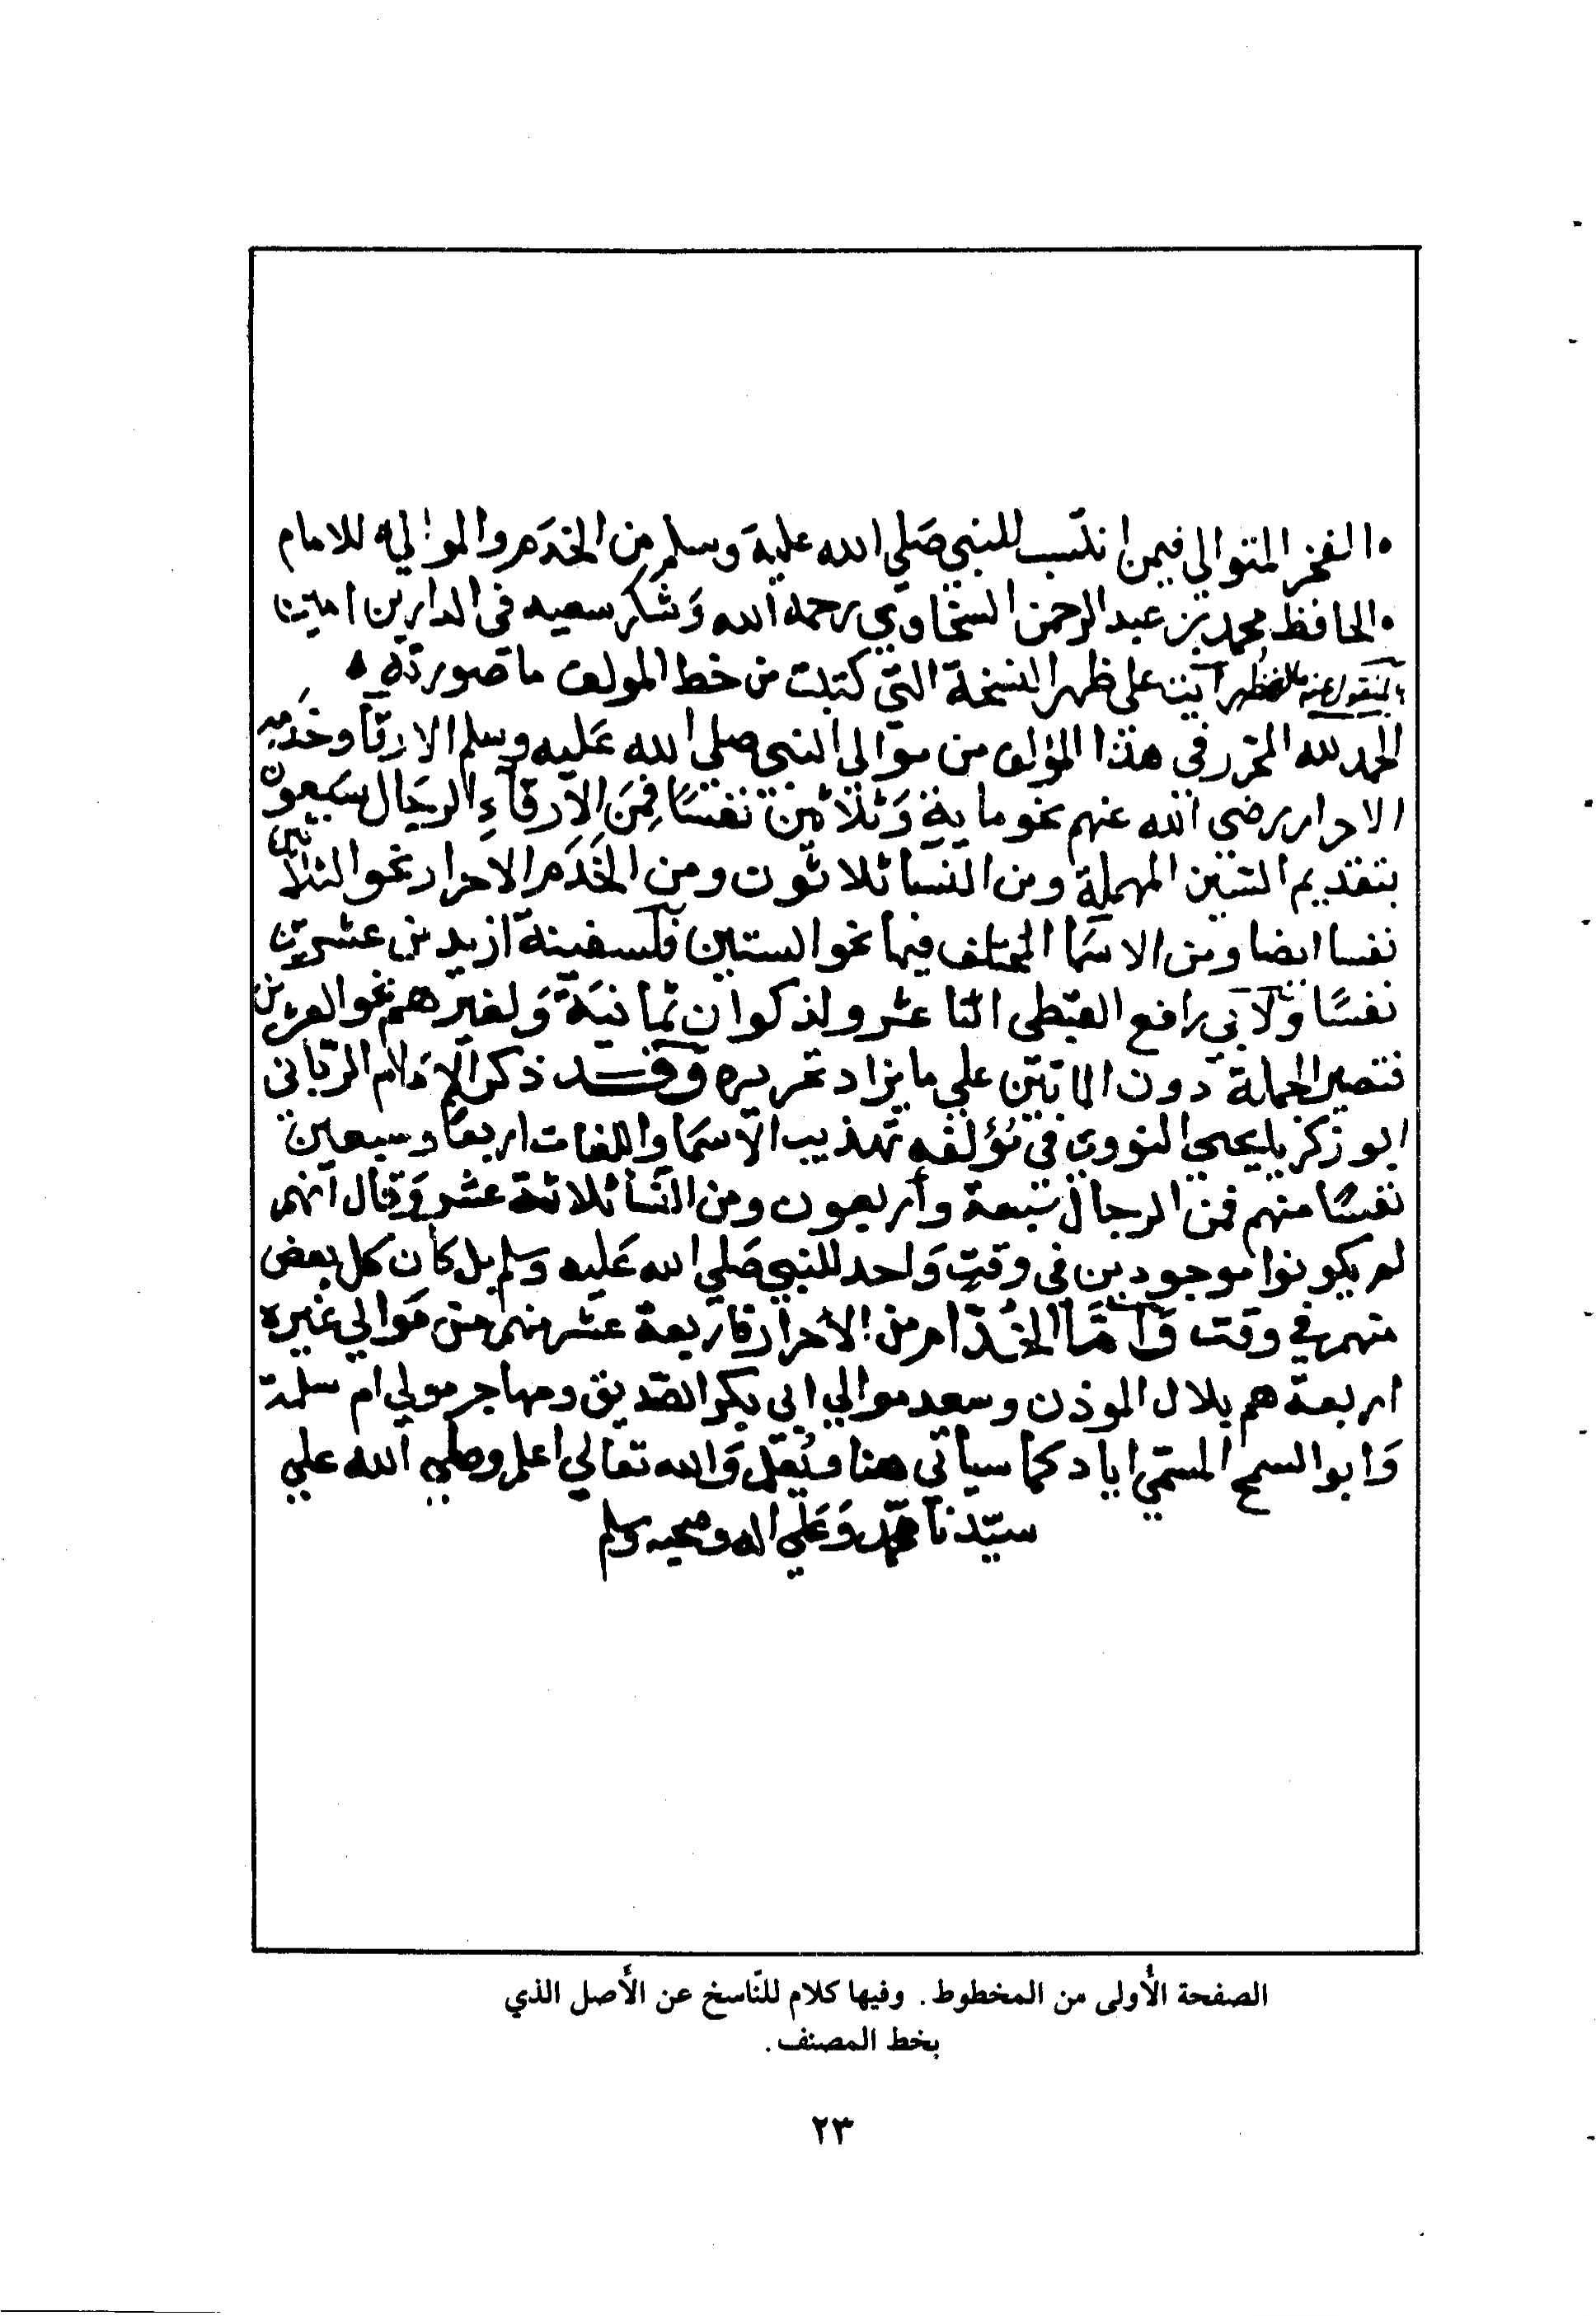 الفخر المتوالي فيمن انتسب للنبي صَلي الله عليه وسلم من الخدَم والموالي للامام
الحافظ محمد بن عبد الرحمن السخاوي رحمه الله وَشكر سعيه في الدارين امين
رايت على ظهر النسخة التي كتبت من خط المولف ما صورته
الحمد لله المحرر في هذا المؤلف من موالي النبي صلي الله عَليه وسلم الارقا وخدَمه
الاحرار رضي الله عنهم نحو ماية وَثلاثين نفسًا فمنَ الأرقاءِ الرجَال سَبعون
بتقديم السّين المهملة ومن النسا ثلاثون ومن الخَدَم الاحرار نحو الثلاثين
نفسا ايضا ومن الاسمَا المختلف فيها نحو الستين فلسفينة ازيد من عشرين
نفسًا ولأبي رافع القبطي اثنا عشر ولذكوان ثمانيَة وَلغيرهم نحو العشرين
فتصير الجملة دون الماتين علي ما يزاد تحريره وَقد ذكر الإمَام الرّباني
ابو زكريا يحيي النووي في مُؤلفه تهذيب الأسمَا واللغات اربعًا وسبعين
نفسًا منهم فمن الرجال سَبعة وأربعون ومن النّسا ثلاثة عشر وَقال انهم
لم يكونوا موجودين في وقتٍ وَاحد للنبي صَلي الله عَليه وسلم بل كان كل بعض
منهم في وقت وَأمَّا الخُدّام من الأحرار فاربعة عشر منهم من مَوالي غيره
اربعة هم بلال الموذن وسعد موالي ابي بكر الصّديق ومهاجر مولي ام سلمة
وَابو السمح المسمّي اياد كما سياتي هنا وَالله تعَالي اعلم وصلي الله علي
سيّدنا محمّد وَعَلي اله وصحبه وسلم
الصفحة الأولى من المخطوط. وفيها كلام للنّاسخ عن الأصل الذي
بخط المصنف.
٢٣